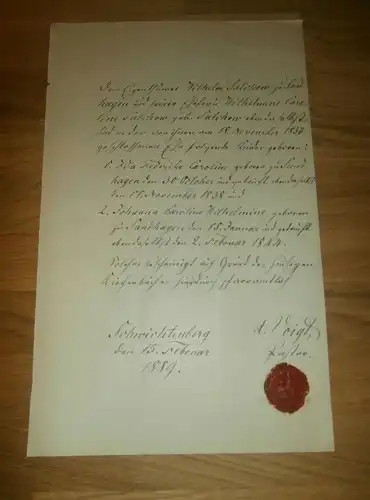 Dem Eigenthümer Wilhelm Salchow zu Sand-
hagen und seiner Ehefrau Wilhelmine Caro-
line Salchow geb. Salchow ebenda selbst
sind in der von ihnen am 18. November 1837
geschlossenen Ehe folgende Kinder geboren:
1. Ida Friederike Caroline geboren zu Sand-
hagen den 30. October und getauft ebendaselbst
den 17. November 1838 und
2. Johanna Caroline Wilhelmine geboren
zu Sandhagen den 15. Januar und getauft
ebendaselbst den 2. Februar 1844.
Solches bescheinigt auf Grund der hiesigen
Kirchenbücher hierdurch pfarramtlich
Schwichtenberg
den 15. Februar
1889.
A. Voigt,
Pastor.